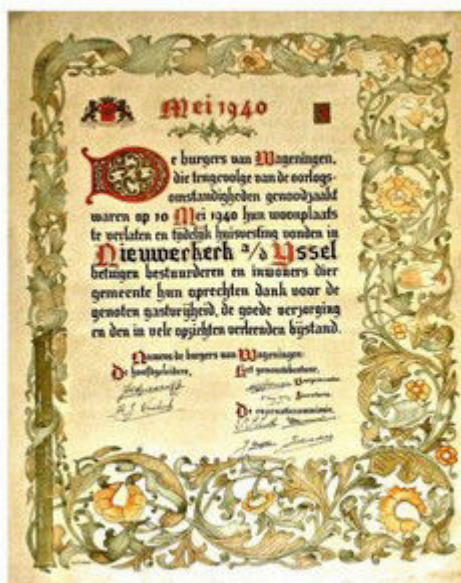 Mei 1940
De burgers van Wageningen,
die tengevolge van de oorlogs-
omstandigheden genoodzaakt
waren op 10 Mei 1940 hun woonplaats
te verlaten en tijdelijk huisvesting vonden in
Nieuwerkerk a/d Yssel
betuigen bestuurderen en inwoners dier
gemeente hun oprechten dank voor de
genoten gastvrijheid, de goede verzorging
en den in vele opzichten verleenden bijstand.
Namens de burgers van Wageningen:
De hoofdgeleiders, Het gemeentebestuur,
Burgemeester
Secretaris
De evacuatiecommissie,